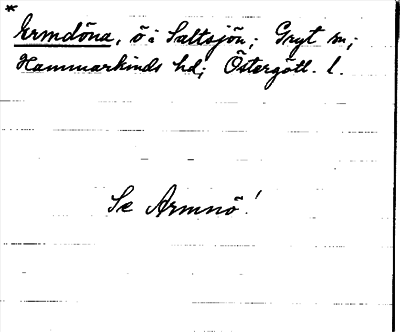 *
Ermdöna, ö i Saltsjön; Gryt sn;
Hammarkinds hd; Östergötl. l.
Se Armnö!